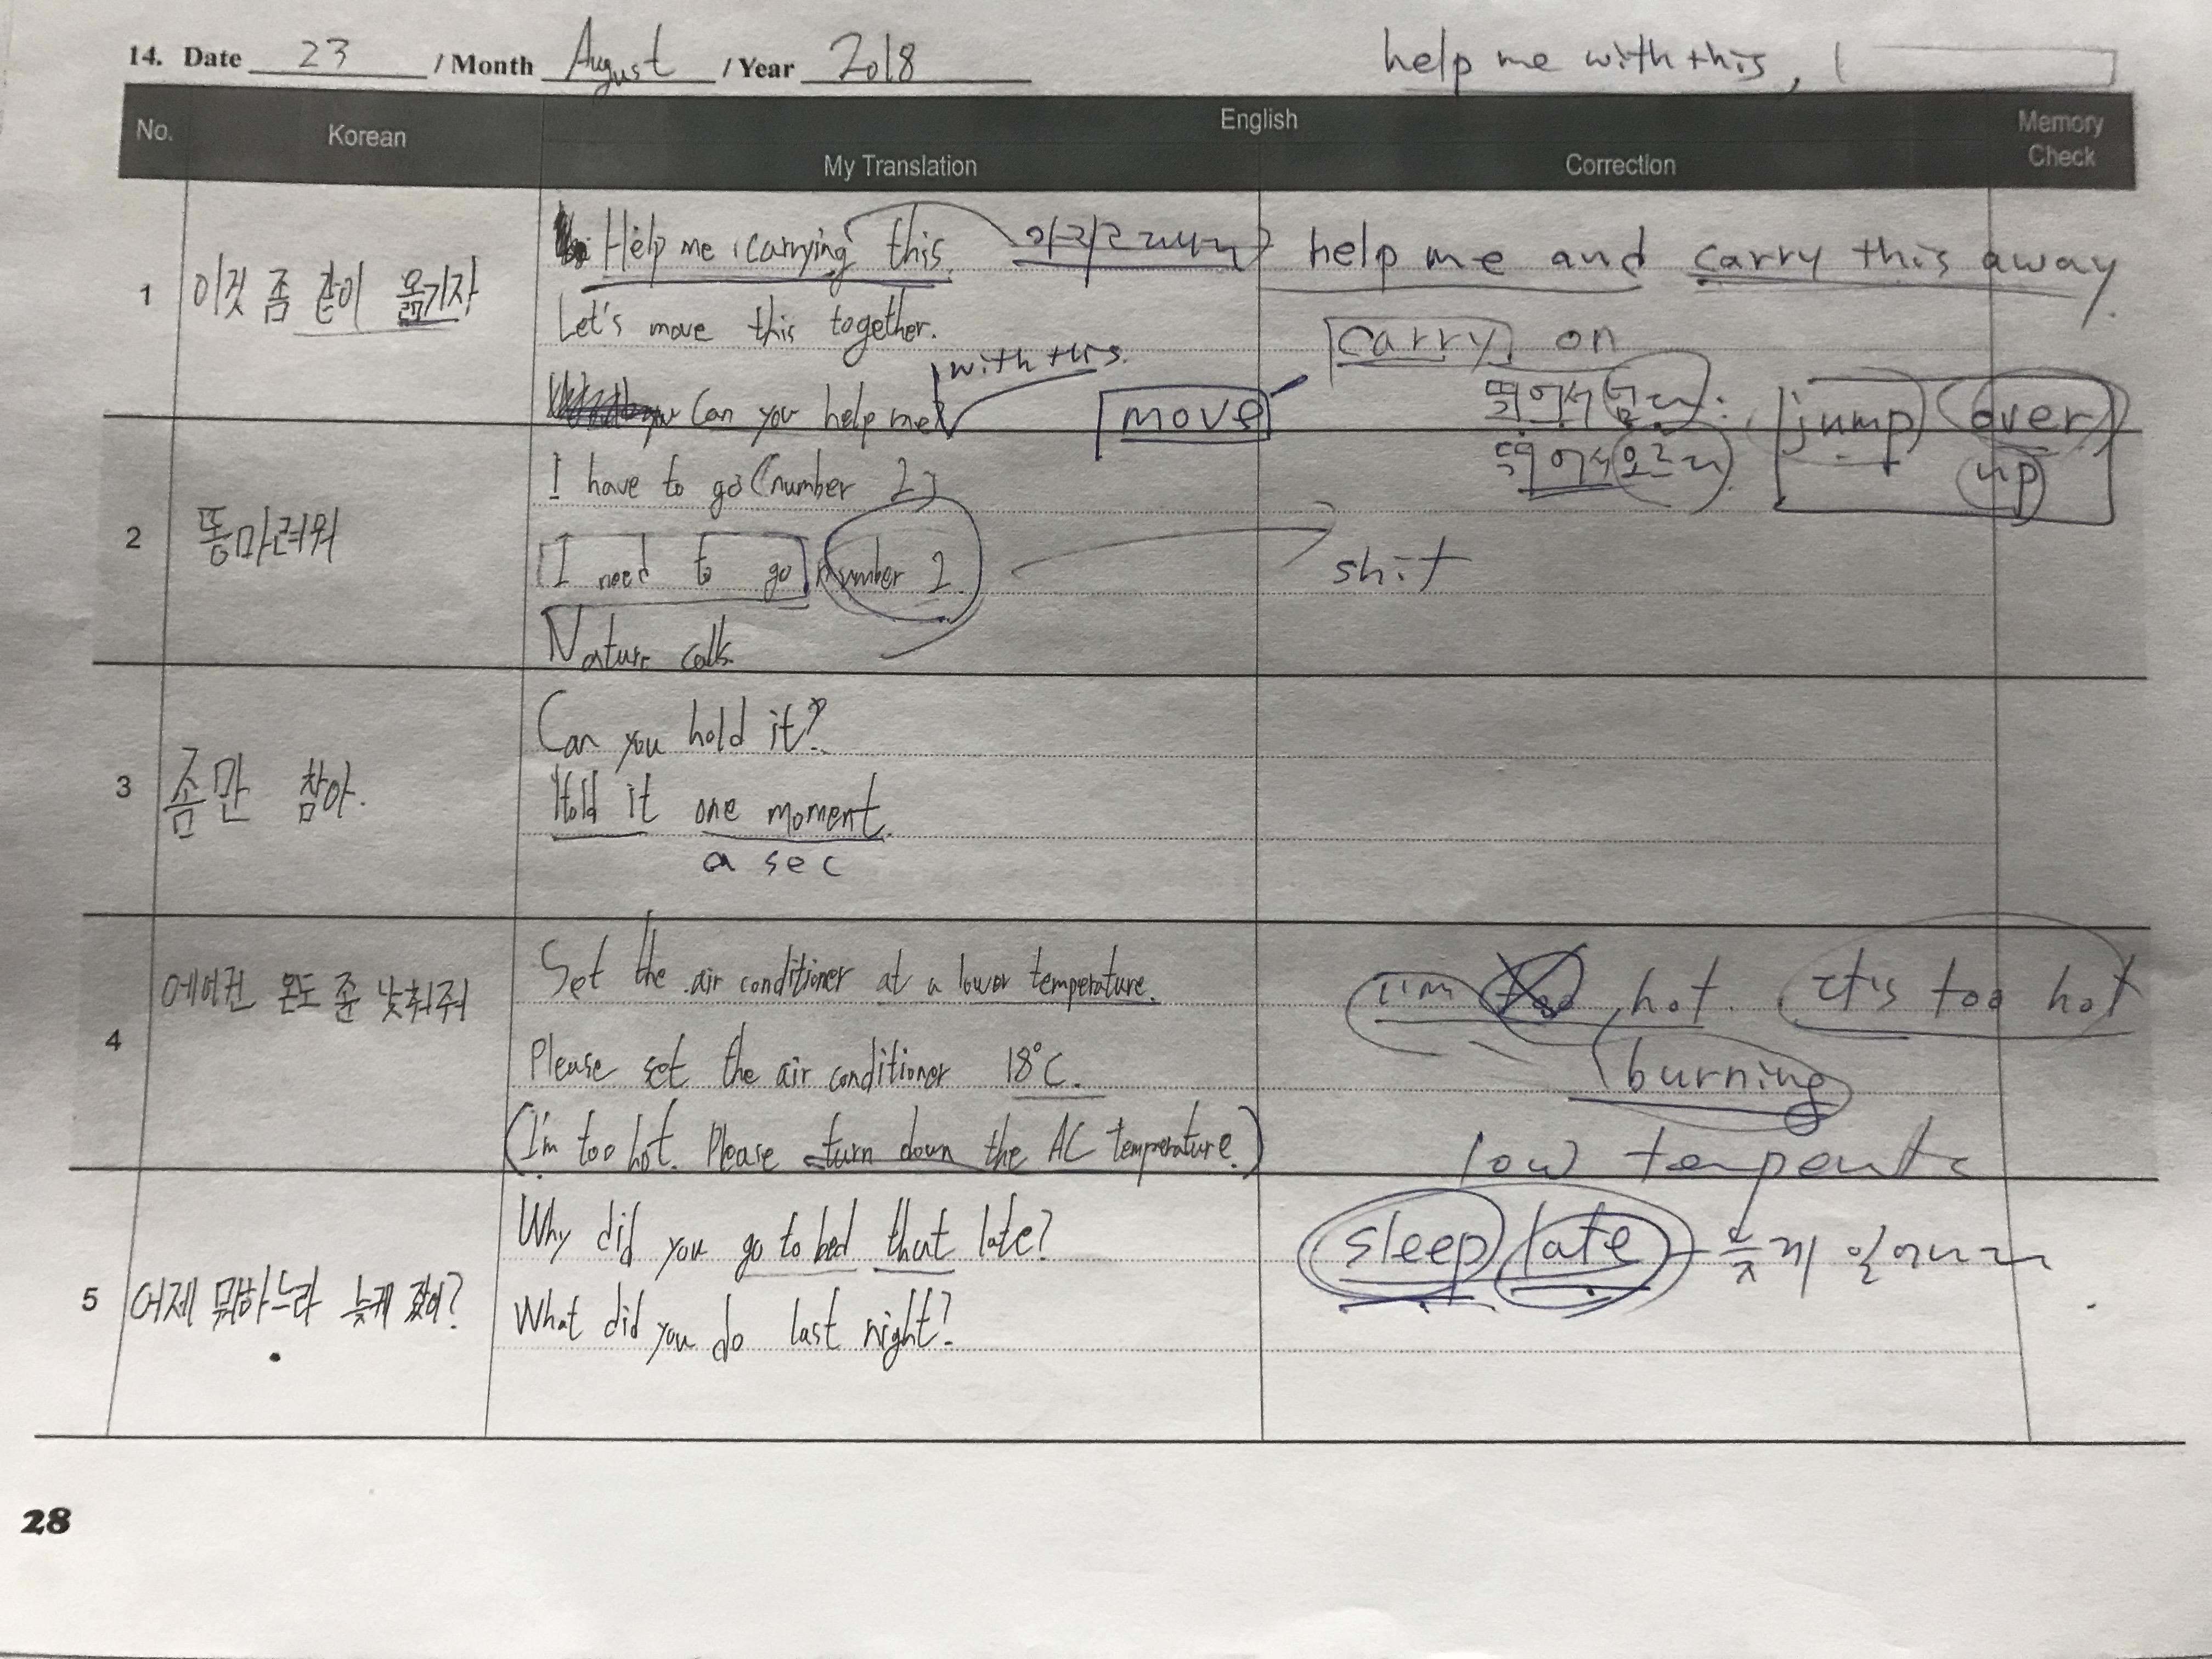 14. Date 23 / Month August / Year 2018
help me with this,
No. Korean English Memory Check
My Translation Correction
1 이것 좀 같이 옮기자
Help me carrying this.
Let's move this together.
Can you help me
with this.
move
help me and carry this away.
carry on
뛰어서 넘다: jump over
뛰어서 오르다 up
2 똥마려워
I have to go (number 2)
I need to go number 2.
Nature calls.
shit
3 좀만 참아.
Can you hold it?
Hold it one moment.
a sec
4 에어컨 온도 좀 낮춰줘
Set the air conditioner at a lower temperature.
Please set the air conditioner 18°C.
(I'm too hot. Please turn down the AC temperature.)
I'm hot. It's too hot
burning
low
5 어제 뭐하느라 늦게 잤어?
Why did you go to bed that late?
What did you do last night?
sleep late 늦게 일어나다
28